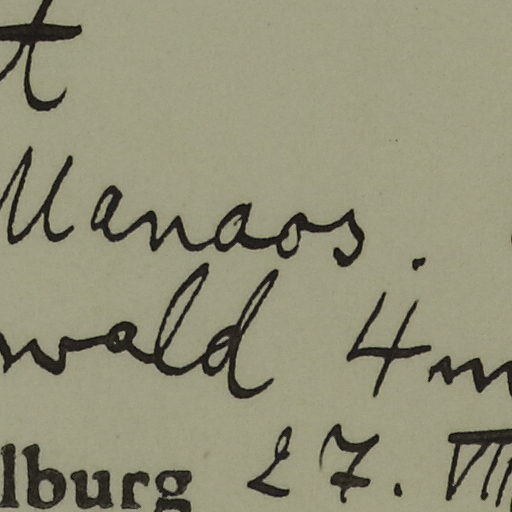 t
Manaos.
wald 4m
lburg 27. VII